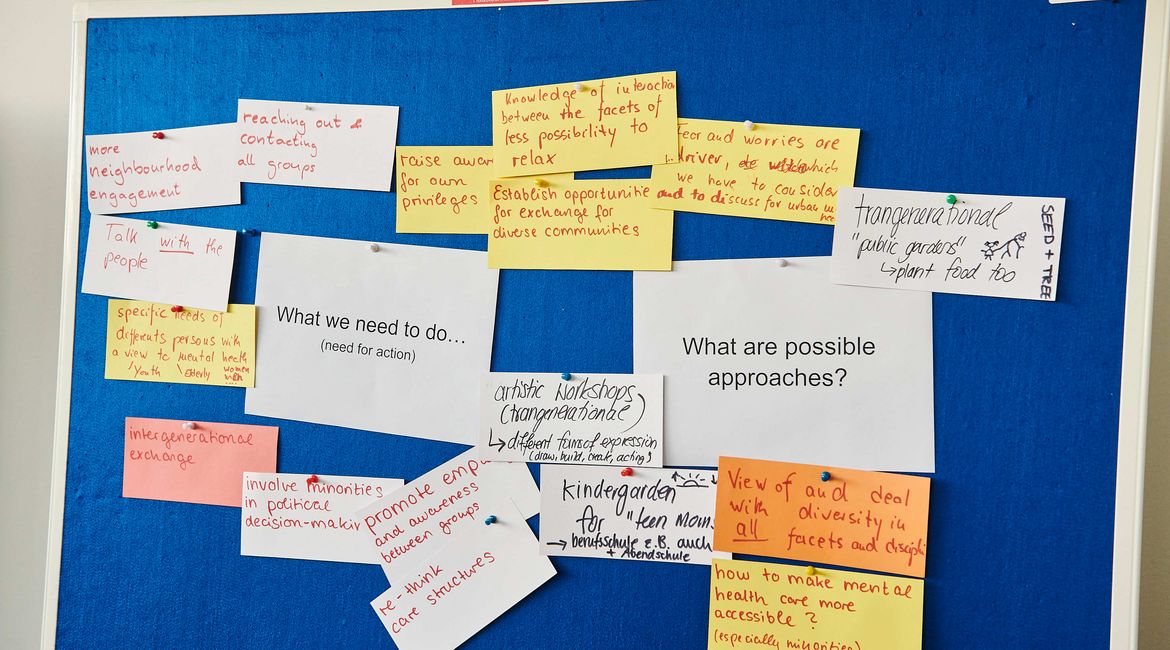 more
neighbourhood
engagement
reaching out &
contacting
all groups
Talk with the
people
specific needs of
differents persons with
a view to mental
/Youth \Elderly women
men
intergenerational
exchange
What we need to do...
(need for action)
involve minorities
in political
decision-makin
promote empa
and awareness
between groups
re-think
care structures
raise awar
for own
privileges
Knowledge of interaction
between the facets of
less possibility to
relax
Establish opportunitie
for exchange for
diverse communities
Fear and worries are
driver, which
we have to consider
and to discuss for urban
What are possible
approaches?
trangenerational
"public gardens"
↳plant food too
SEED + TREE
artistic workshops
(trangenerational)
↳ different forms of expression
(draw, build, create, acting)
kindergarden
for "teen moms
→ berufsschule z.B. auch
+ Abendschule
View of and deal
with diversity in
all facets and discipli
how to make mental
health care more
accessible?
(especially minorities)